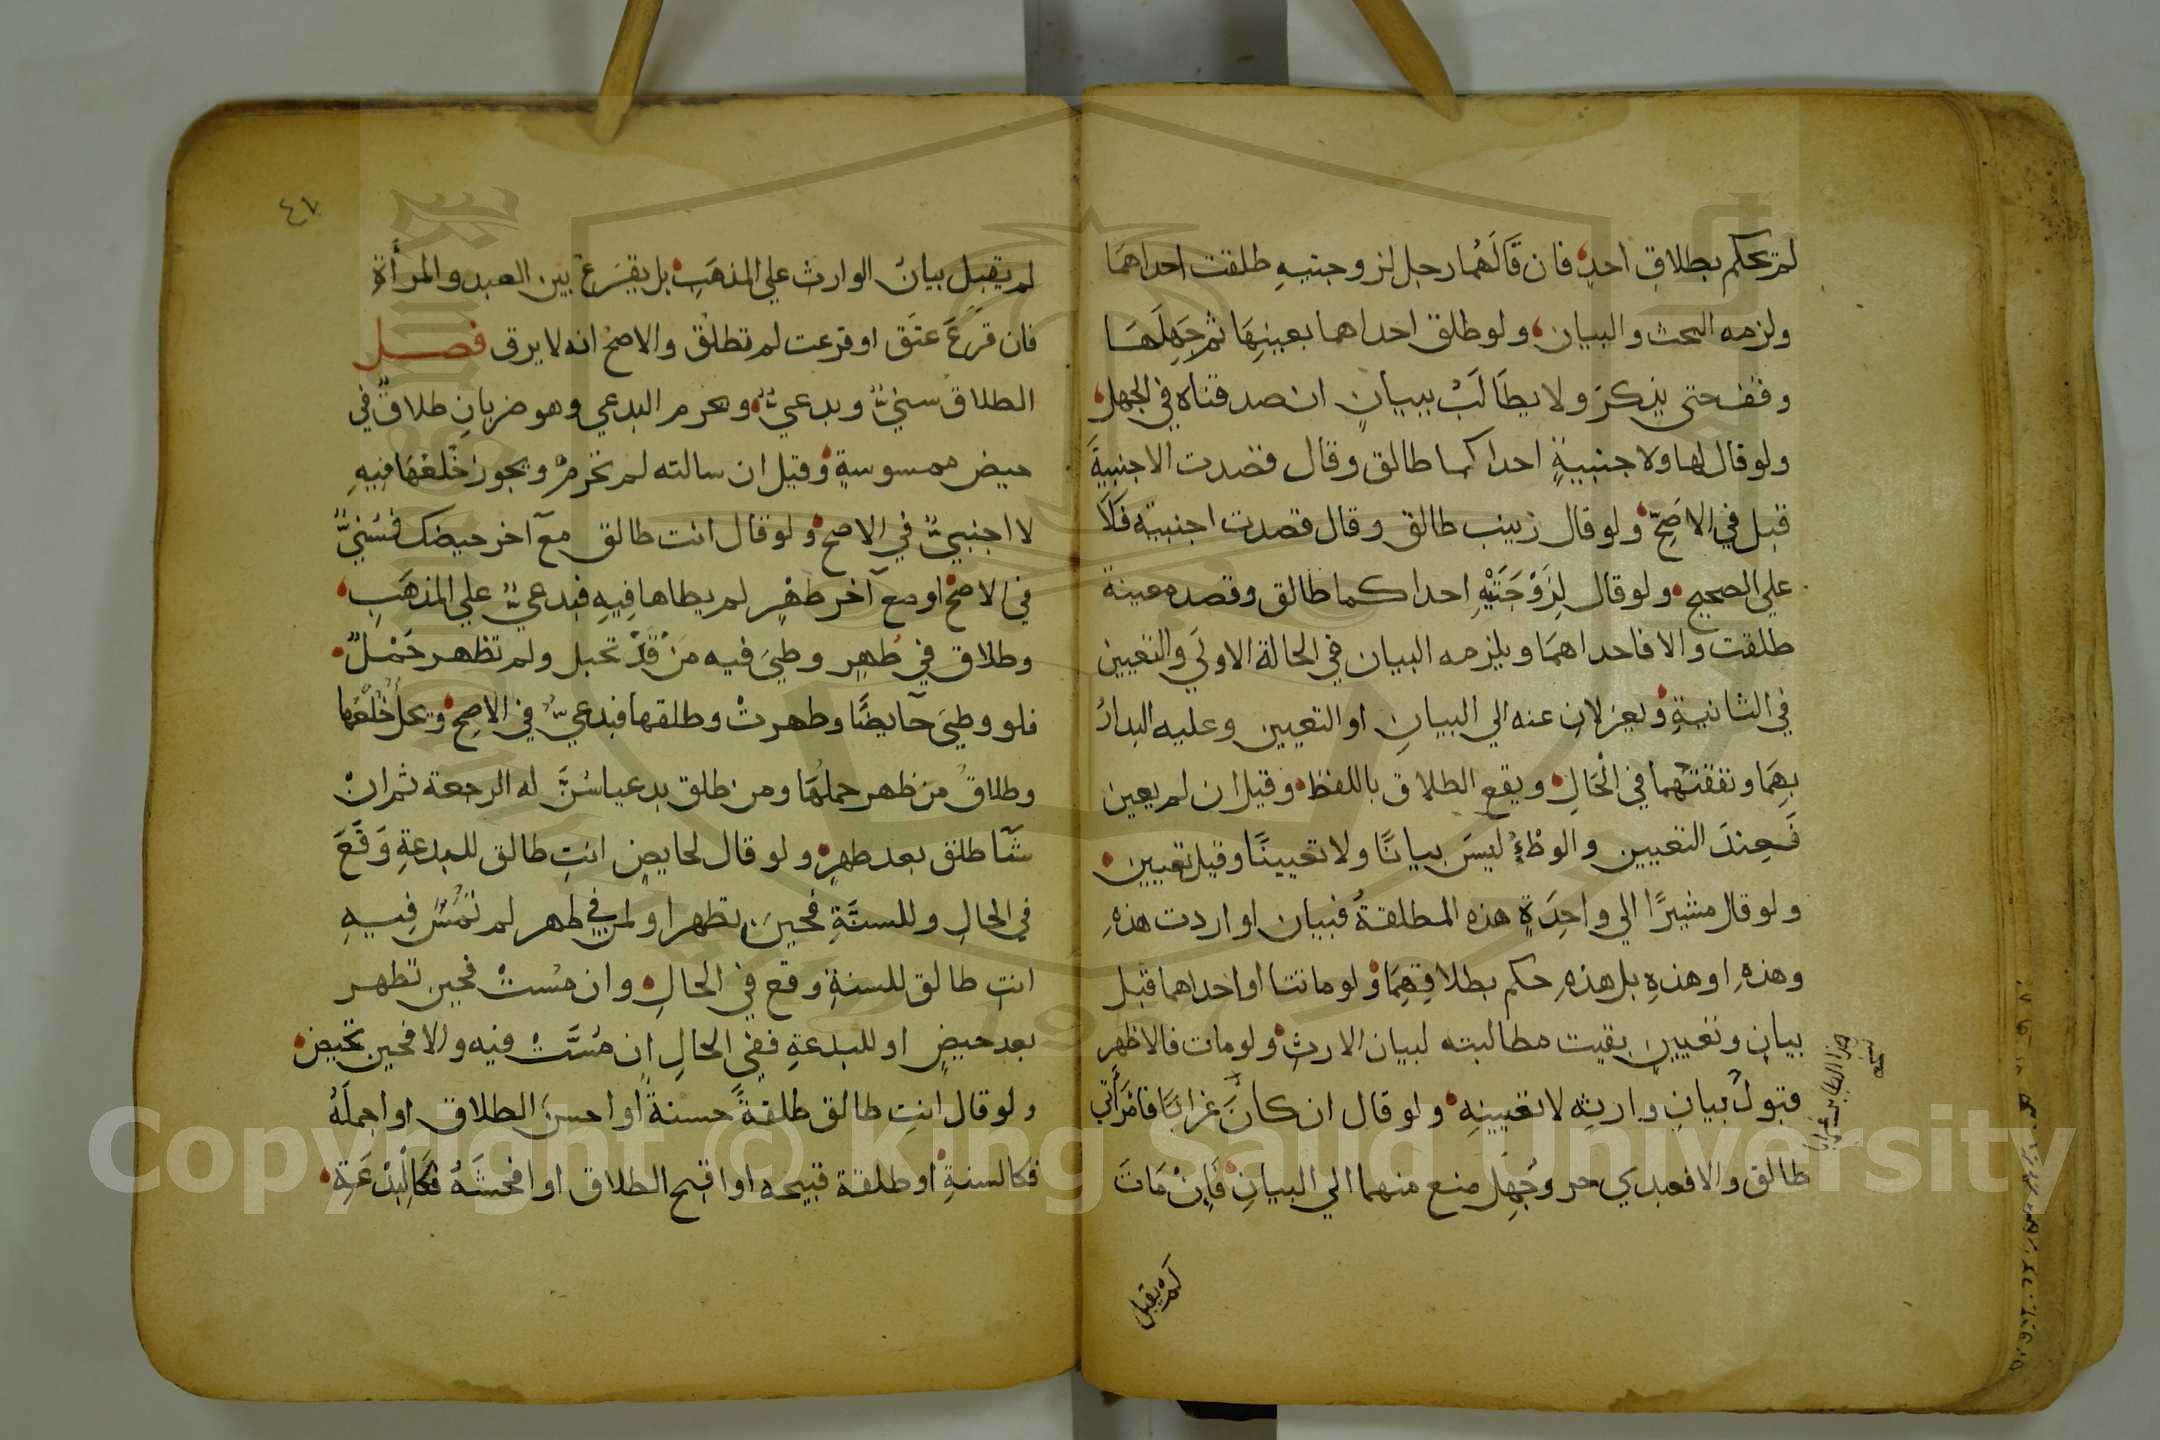 لم نحكم بطلاق احد فان قالهما رجل لزوجتيه طلقت احداهما
ولزمه البحث والبيان ولو طلق احداهما بعينها ثم جهلها
وقف حتى يذكر ولا يطالب ببيان ان صدقتاه في الجهل
ولو قال لها ولاجنبية احداكما طالق وقال قصدت الاجنبية
قبل في الاصح ولو قال زينب طالق وقال قصدت اجنبية فلا
علي الصحيح ولو قال لزوجتيه احداكما طالق وقصد معينة
طلقت والا فاحداهما ويلزمه البيان في الحالة الاولي والتعيين
في الثانية وتعزلان عنه الي البيان او التعيين وعليه البدار
بهما ونفقتهما في الحال ويقع الطلاق باللفظ وقيل ان لم يعين
فعند التعيين والوطء ليس بيانا ولا تعيينا وقيل تعيين
ولو قال مشيرا الي واحدة هذه المطلقة فبيان او اردت هذه
وهذه او هذه بل هذه حكم بطلاقهما ولو ماتتا او احداهما قبل
بيان وتعيين بقيت مطالبته لبيان الارث ولو مات فالاظهر
قبول بيان وارثه لا تعيينه ولو قال ان كان غرابا فامرأتي
طالق والا فعبدي حر وجهل منع منهما الي البيان فان مات
هذا الطاير غرابا
نسخه
لم يقبل
٤٧
لم يقبل بيان الوارث علي المذهب بل يقرع بين العبد والمرأة
فان قرع عتق او قرعت لم تطلق والاصح انه لا يرق فصل
الطلاق سني وبدعي ويحرم البدعي وهو ضربان طلاق في
حيض ممسوسة وقيل ان سالته لم تحرم ويجوز خلعها فيه
لا اجنبي في الاصح ولو قال انت طالق مع آخر حيضك فسني
في الاصح او مع آخر طهر لم يطاها فيه فبدعي علي المذهب
وطلاق في طهر وطي فيه من قد تحبل ولم تظهر حمل
فلو وطي حآيضا وطهرت وطلقها فبدعي في الاصح ويحل خلعها
وطلاق من ظهر حملها ومن طلق بدعيا سن له الرجعة ثم ان
شآ طلق بعد طهر ولو قال لحايض انت طالق للبدعة وقع
في الحال وللسنة فحين تطهر او لمن في طهر لم تمس فيه
انت طالق للسنة وقع في الحال وان مست فحين تطهر
بعد حيض او للبدعة ففي الحال ان مست فيه والا فحين تحيض
ولو قال انت طالق طلقة حسنة او احسن الطلاق او اجمله
فكالسنة او طلقة قبيحه او اقبح الطلاق او افحشه فكالبدعة
Copyright © King Saud University